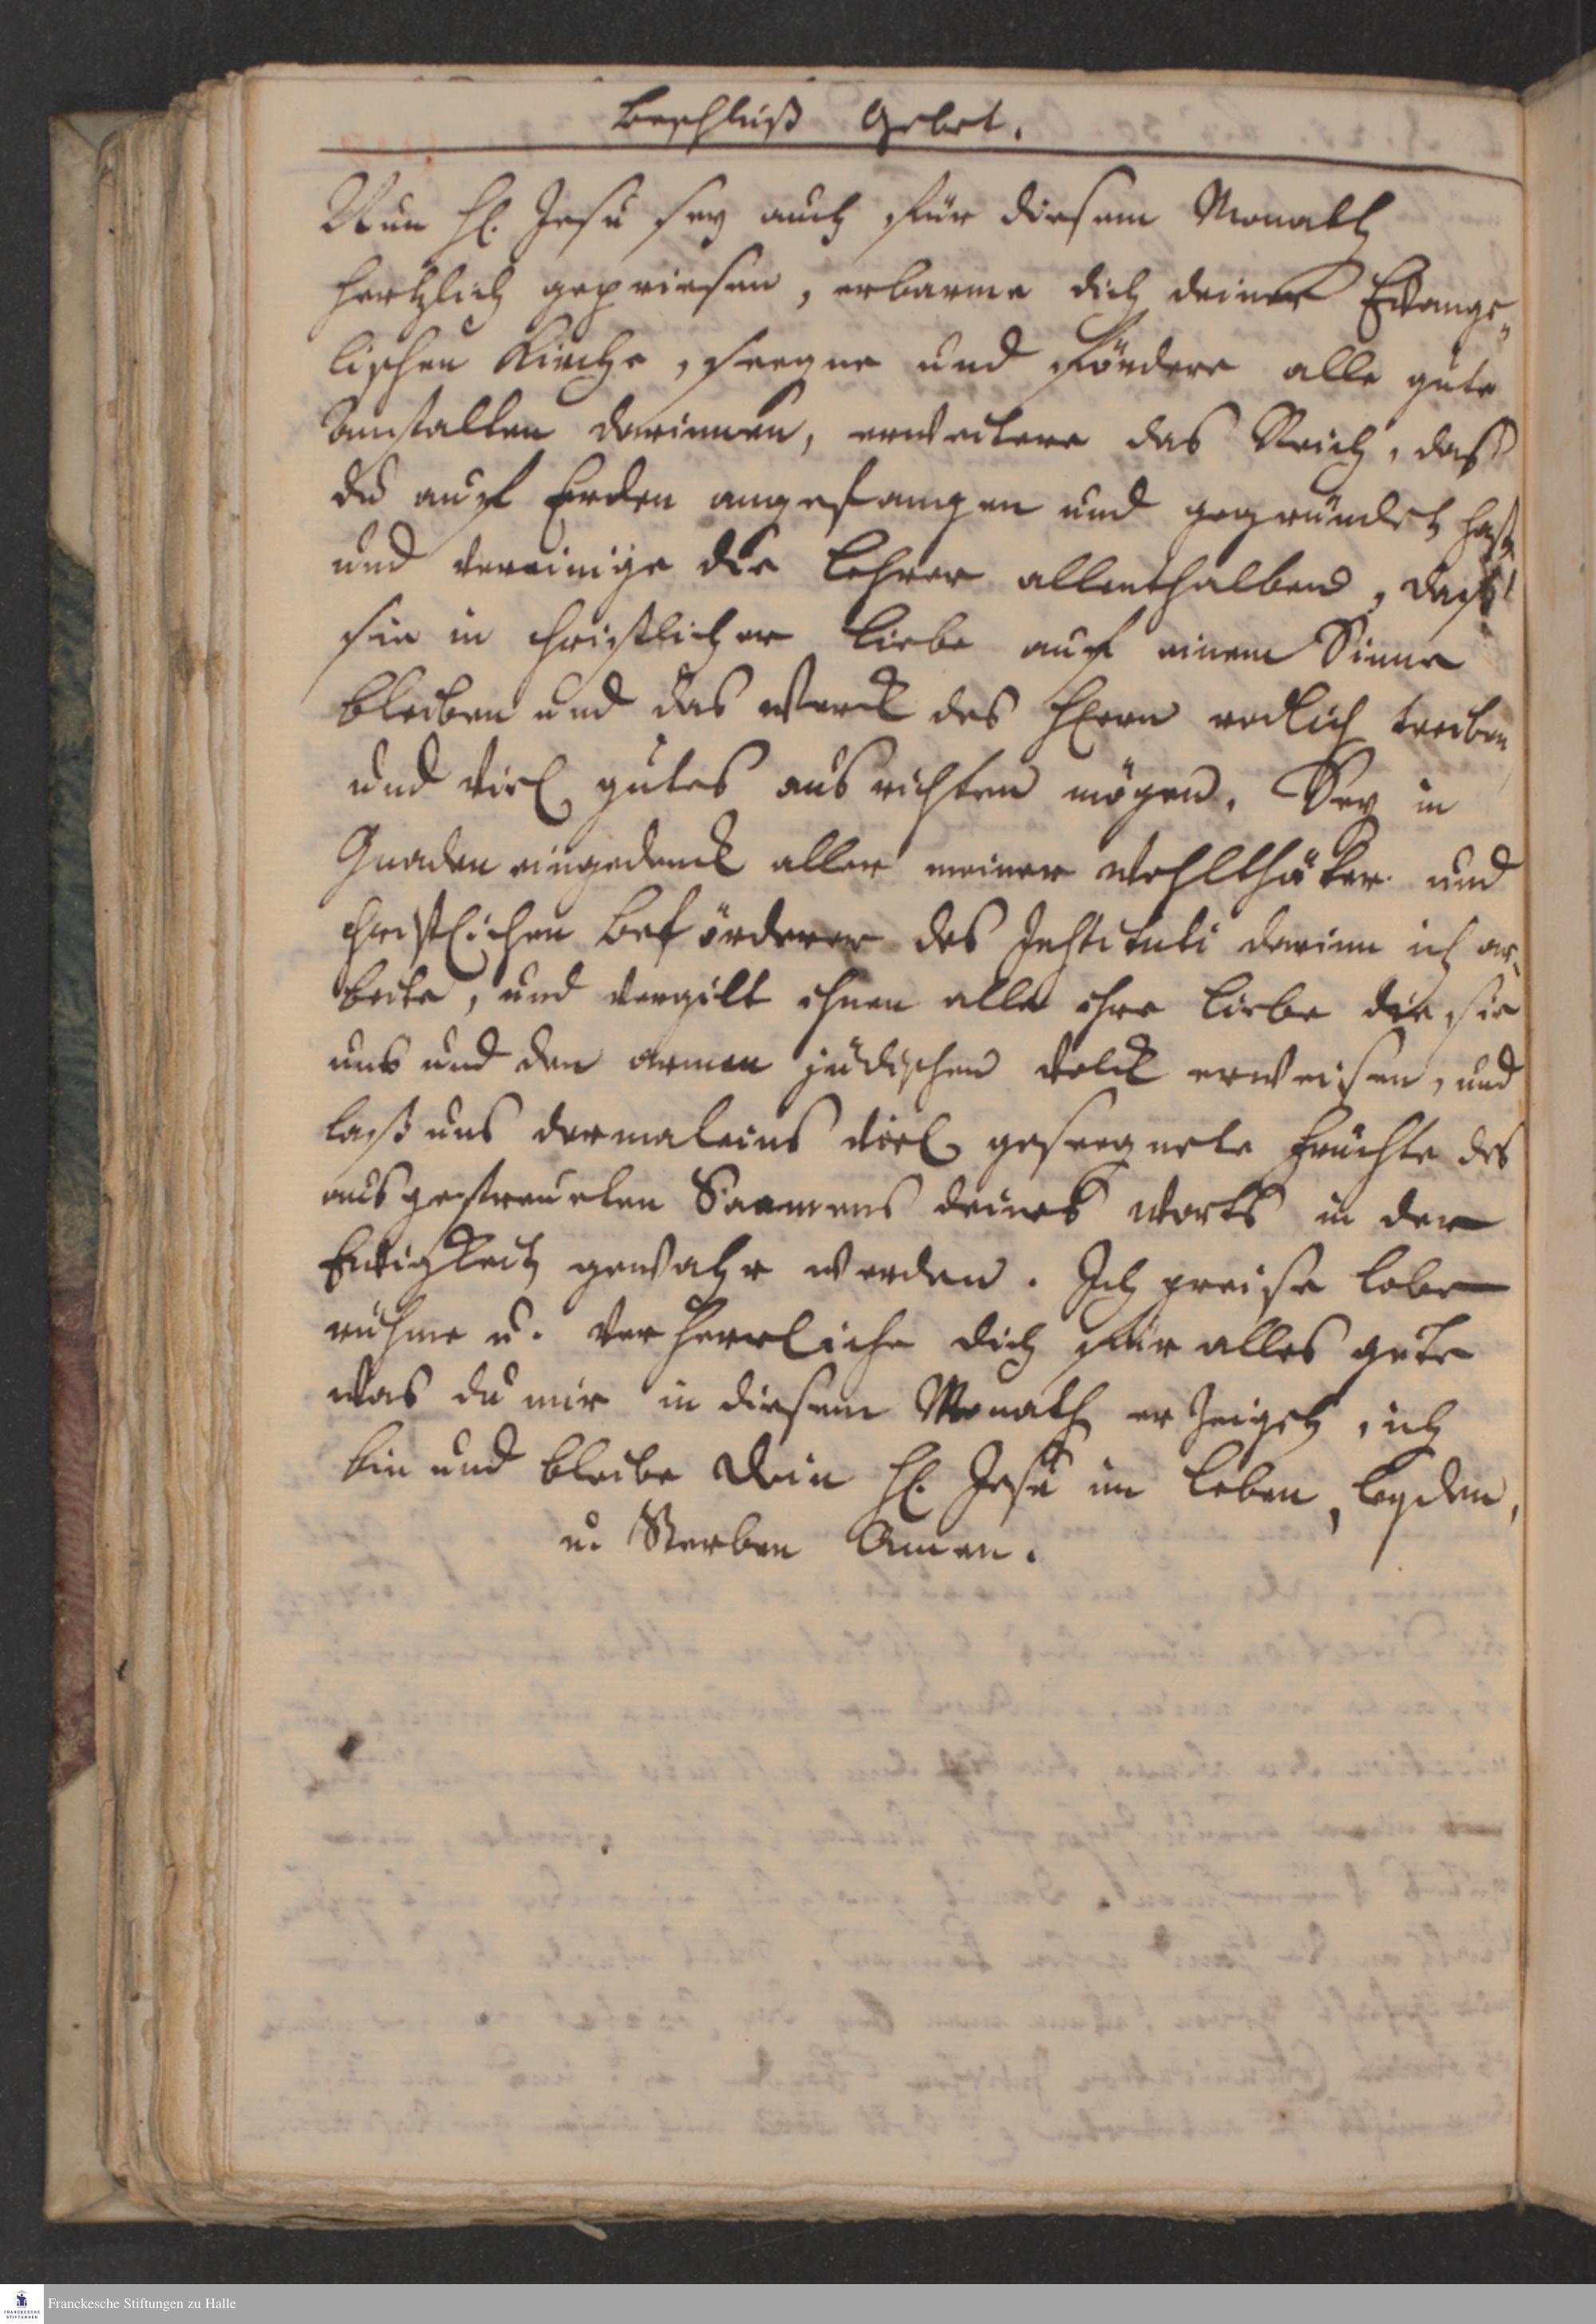 Beschluß Gebet.
Nun H. Jesu sey auch für diesem Monath
hertzlich gepriesen, erbarme dich deiner Evange„
lischen Kirche, seegne und fördere alle gute
Anstalten darinnen, erweitere das Reich, das
du auf Erden angefangen und gegründet hast
und vereinige die Lehrer allenthalben, daß
sie in christlicher Liebe auf einem Sinne
bleiben und das Werck des Herrn redlich treiben
und viel gutes ausrichten mögen. Sey in
Gnaden eingedenck aller meiner Wohlthäter und
christlichen Beförderer des Instituti darinn ich ar„
beite, und vergilt ihnen alle ihre Liebe die sie
uns und den armen jüdischen Volck erweisen, und
laß uns dermaleins viel geseegnete Früchte des
ausgestreueten Saamens deines Worts in der
Ewigkeit gewahr werden. Ich preise lobe
rühme u. verherrliche dich für alles gute
was du mir in diesem Monath erzeiget, ich
bin und bleibe dein H. Jesu im Leben, Leyden,
u. Sterben Amen.
Franckesche Stiftungen zu Halle
FRANCKESCHE
STIFTUNGEN